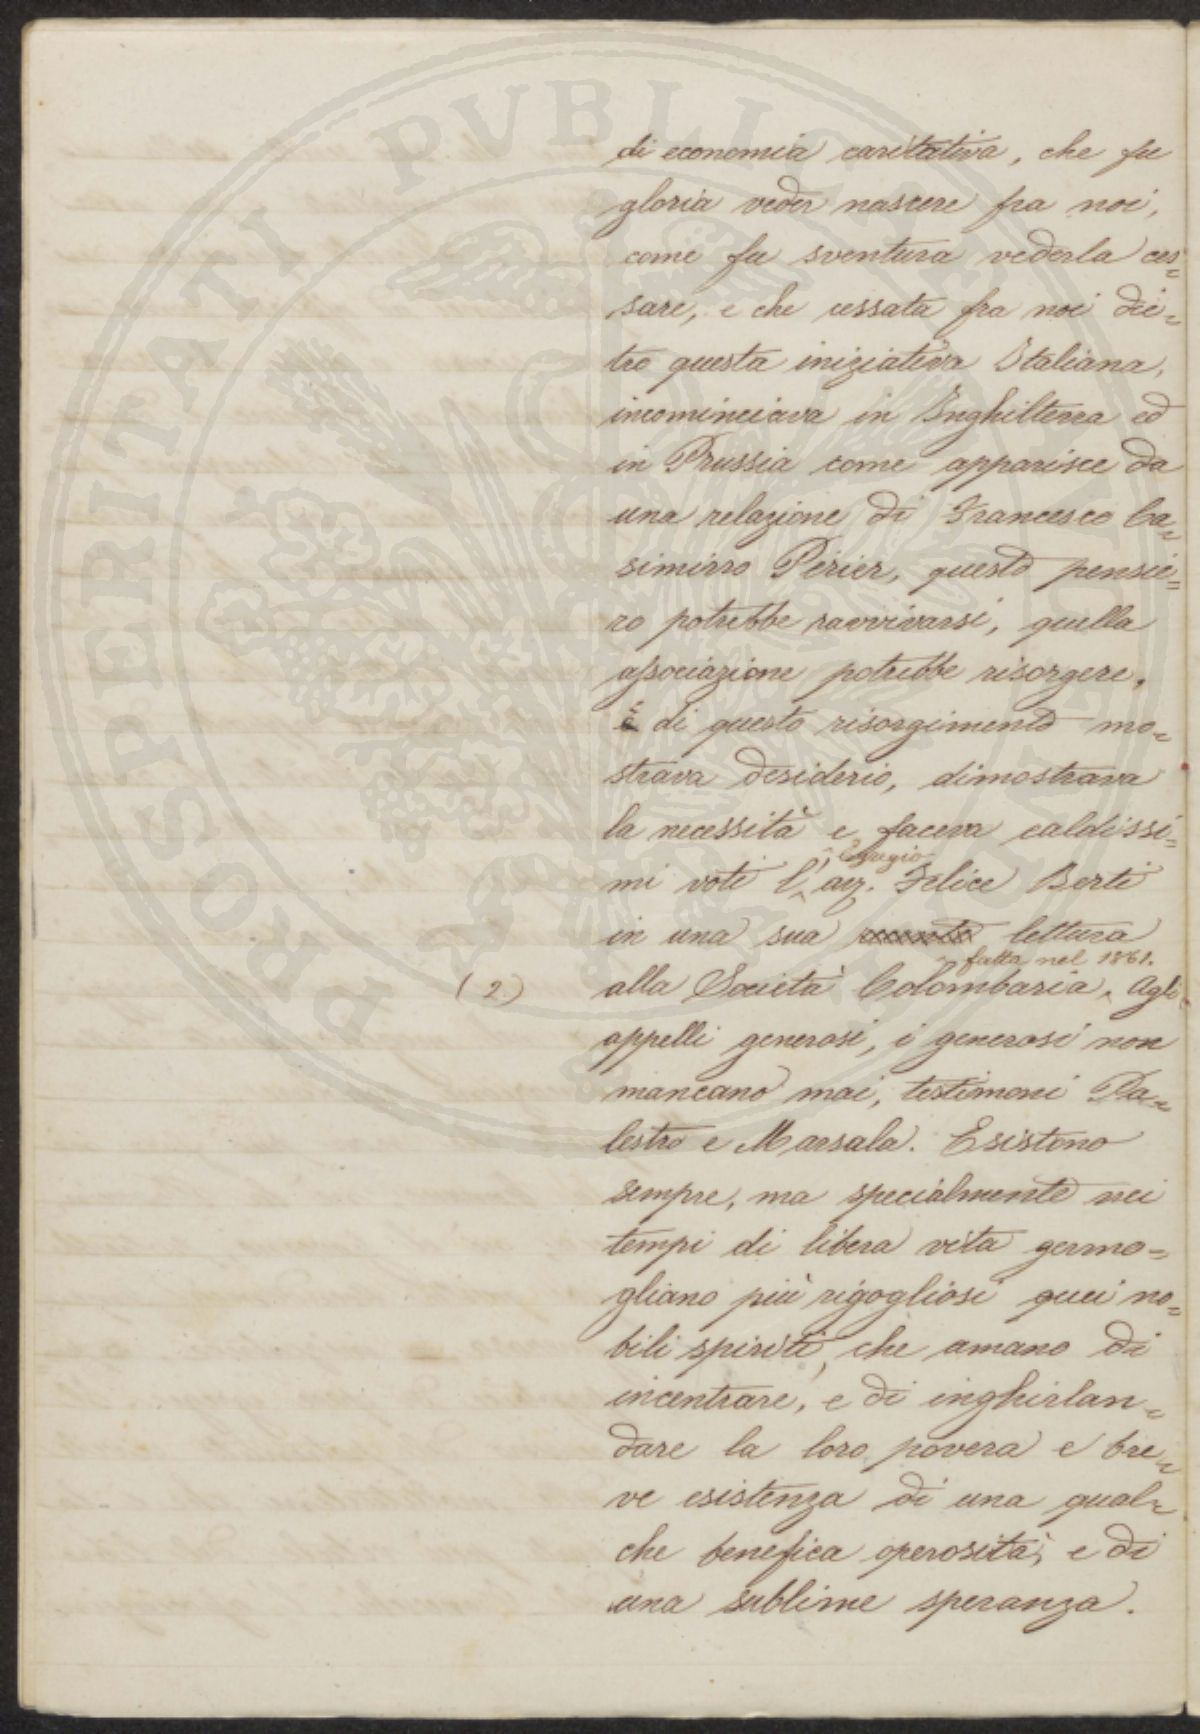 di economia caritativa, che fu
gloria veder nascere fra noi,
come fu sventura vederla ces=
sare, e che cessata fra noi die=
tro questa iniziativa Italiana,
incominciava in Inghilterra ed
in Prussia come apparisce da
una relazione di Francesco Ca=
simirro Périer, questo pensie=
ro potrebbe ravvivarsi, quella
associazione potrebbe risorgere.
E di questo risorgimento mo=
strava desiderio, dimostrava
la necessità e faceva caldissi=
Egregio
mi voti l'avv. Felice Berti
in una sua lettura
fatta nel 1861.
(2) alla Società Colombaria. Agli
appelli generosi, i generosi non
mancano mai, testimoni Pa=
lestro e Marsala. Esistono
sempre, ma specialmente nei
tempi di libera vita germo=
gliano più rigogliosi quei no=
bili spiriti, che amano di
incentrare, e di inghirlan=
dare la loro povera e bre=
ve esistenza di una qual=
che benefica operosità, e di
una sublime speranza.
PUBLICAE PROSPERITATI